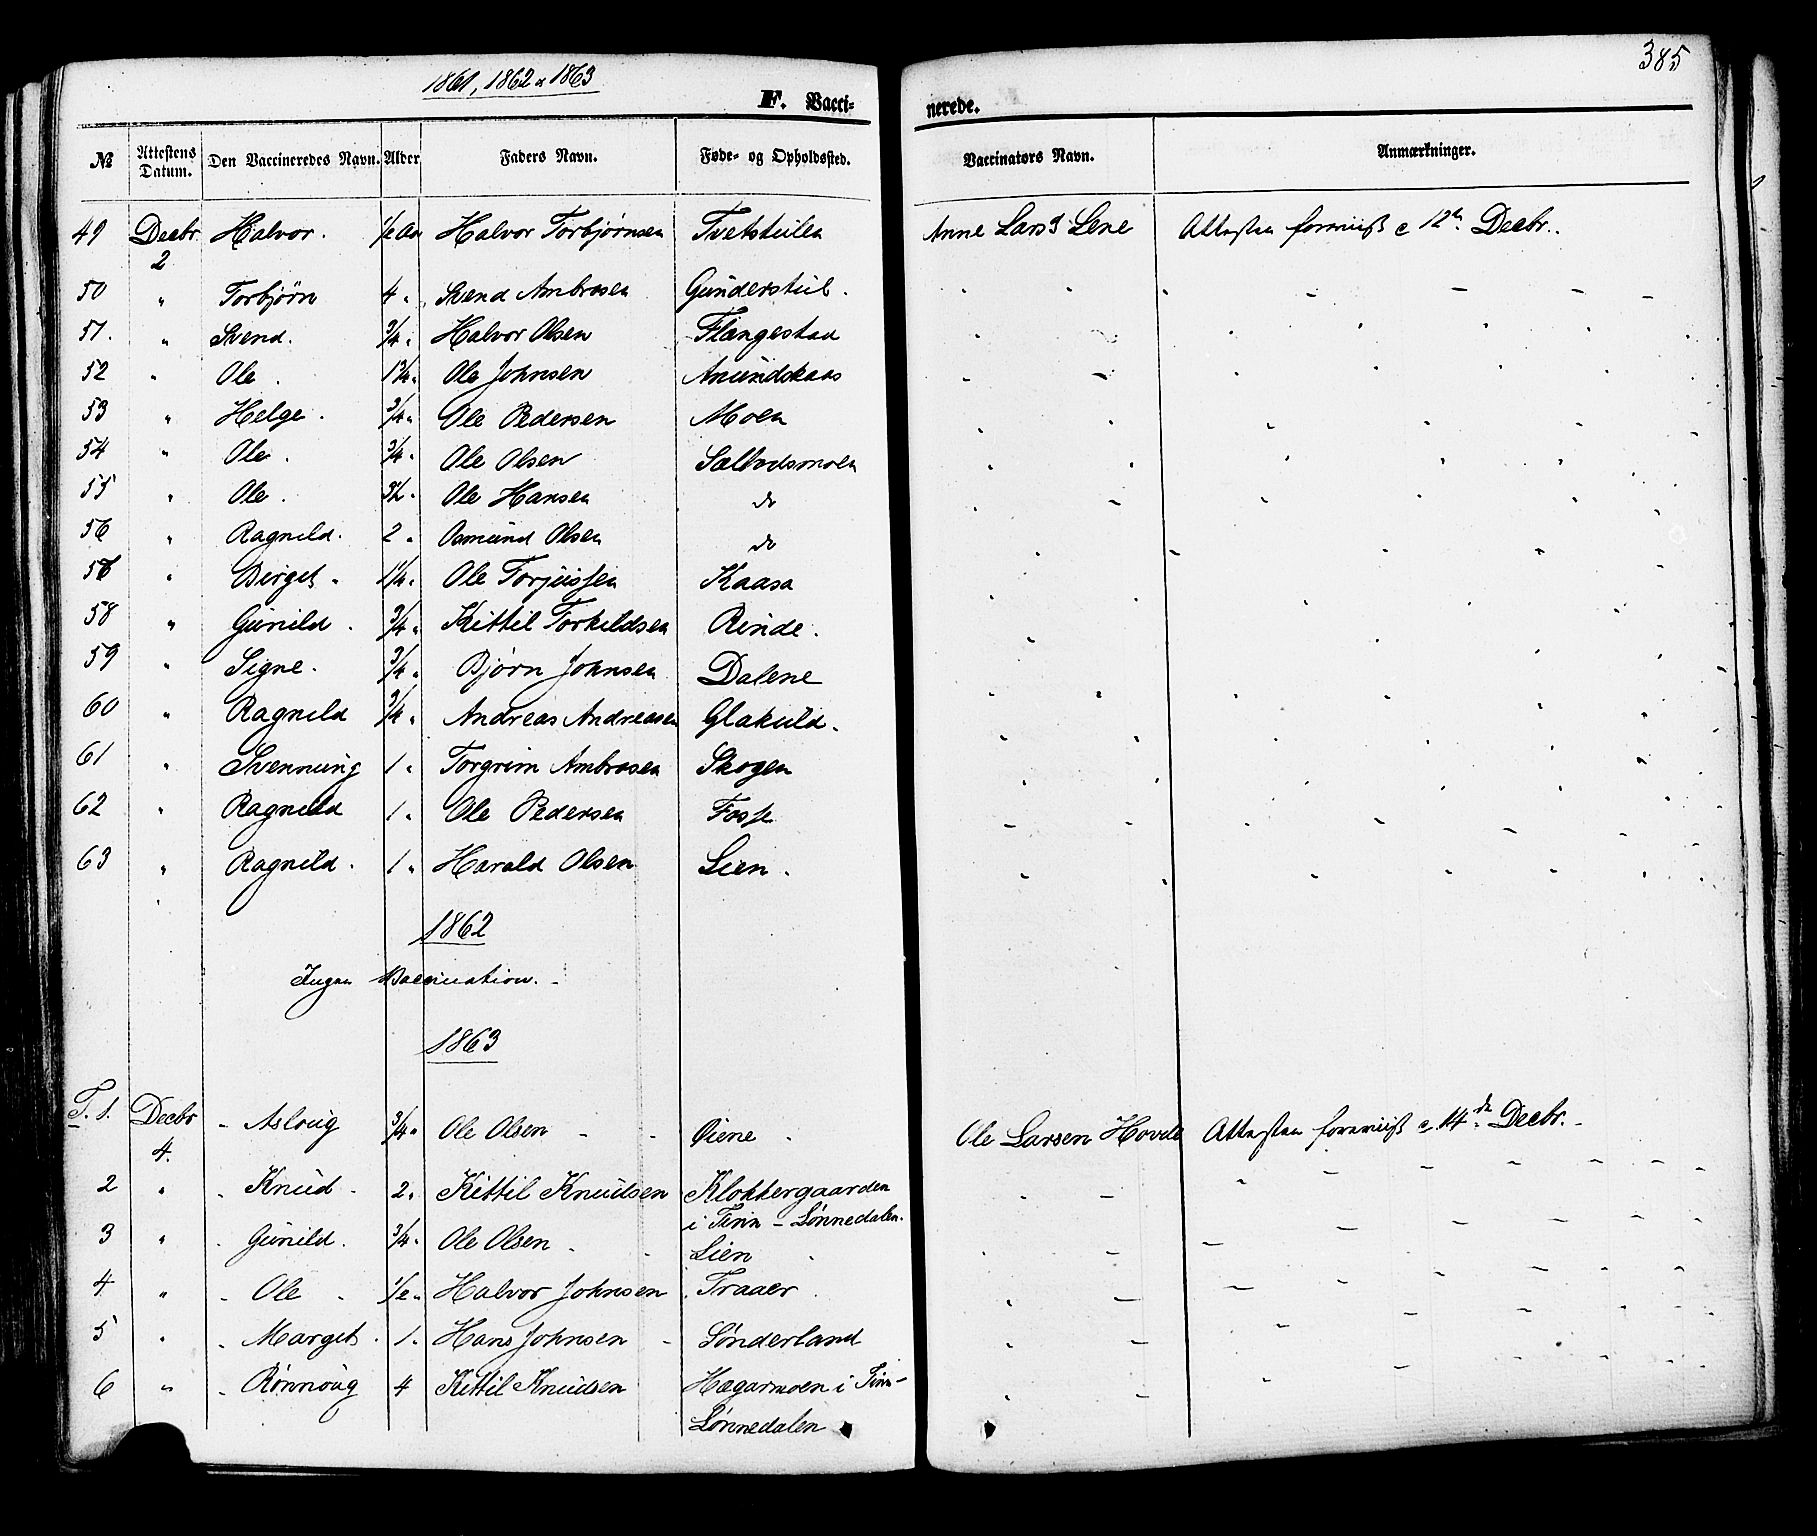 1861, 1862 & 1863
385
F. Vacci-
nerede.
№ Attestens Datum. Den Vaccineredes Navn. Alder Faders Navn. Føde- og Opholdssted. Vaccinators Navn. Anmærkninger.
49 Decbr 2 Halvor. 1/2 Aar Halvor Torbjørnsen Tvetstulen Anne Larsd Lene Attesten foreviist d 12te Decbr.
50 " Torbjørn 4 " Svend Ambrosen Gunderstul.
51. " Svend. 3/4 " Halvor Olsen Flangestad
52 " Ole. 1 3/4 " Ole Johnsen Amundskaas
53 " Helge. 3/4 " Ole Pedersen Moen
54 " Ole. 3/4 " Ole Olsen Sælbodsmoen
55 " Ole. " Ole Hansen do
56 " Ragnild. 2 " Osmund Olsen do
" Birget " 1 1/4 " Ole Torjussen Kaasa
58 " Gunild. 3/4 " Kittil Torkildsen Rinde.
59 " Signe. 3/4 " Bjørn Johnsen Dalene
60 " Ragnild 3/4 " Andreas Andreasen
61 " Svennung 1 " Torgrim Ambrosen Skogen
62 " Ragnild 1 " Ole Pedersen Fosse
63 " Ragnild. 1 " Harald Olsen Lien.
1862
Ingen Vaccination.
1863
T. 1. Decbr 4. - Asloug 3/4 " Ole Olsen Øiene Ole Larsen Hovde Attesten foreviist d 14de Decbr.
2 " - Knud - 2 " Kittil Knudsen Klokkergaarden
i Tinn - Lønnedalen.
3 " - Gunild. 3/4 " Ole Olsen - Lien
4 " - Ole - 1/2 " Halvor Johnsen Traaer
5 " - Marget. 1 " Hans Johnsen - Sønderland
6 " - Rønnoug 4 Kittil Knudsen Hægarmoen i Tinn-
Lønnedalen